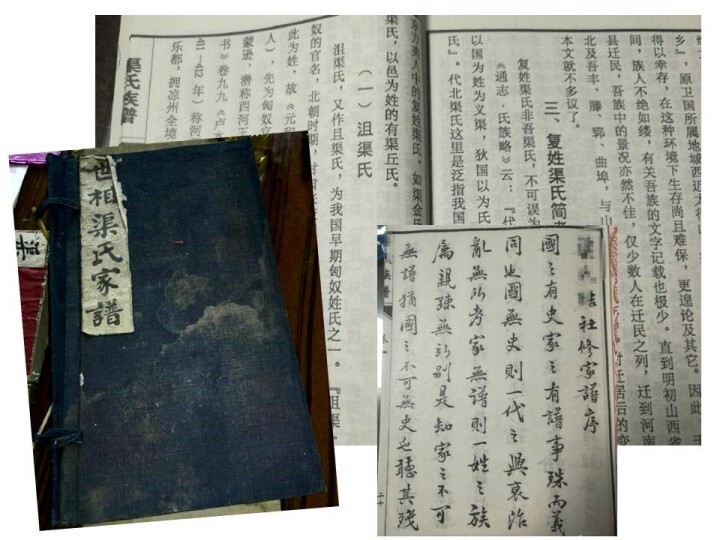 乡』,原卫国所属地域西近太行
得以幸存,在这种环境下生存尚且难保,更遑论及其它。因此
间,族人不绝如缕,有关吾族的文字记载也极少。直到明初山西省
县迁民,吾族中的景况亦然不佳,仅少数人在迁民之列,迁到河南
北及吾丰、滕、郓、曲埠,与山
本文就不多议了。
三、复姓渠氏简
复姓渠氏非吾渠氏,不可误为
《通志·氏族略》云:『代
以国为姓为义渠,狄国以为氏
氏』。代北渠氏这里是泛指我国
东方夷人中的复姓渠氏,如渠金氏
渠氏,以邑为姓的有渠丘氏。
(一)沮渠氏
沮渠氏,又作且渠氏,为我国早期匈奴姓氏之一。『沮渠
奴的官名,北朝时期,
此为姓,故《元和
人),先为匈奴官
蒙逊,潜称西河王
书》卷九九《卢水
乐都,拥凉州全境
渠氏族谱
世相渠氏家谱
社修家谱序
國之有史家之有譜事殊而義
同也國無史則一代之興衰治
亂無所考家無譜則一姓之族
属親疎無所别是知家之不可
無譜猶國之不可無史也聽其殘
族谱
二十